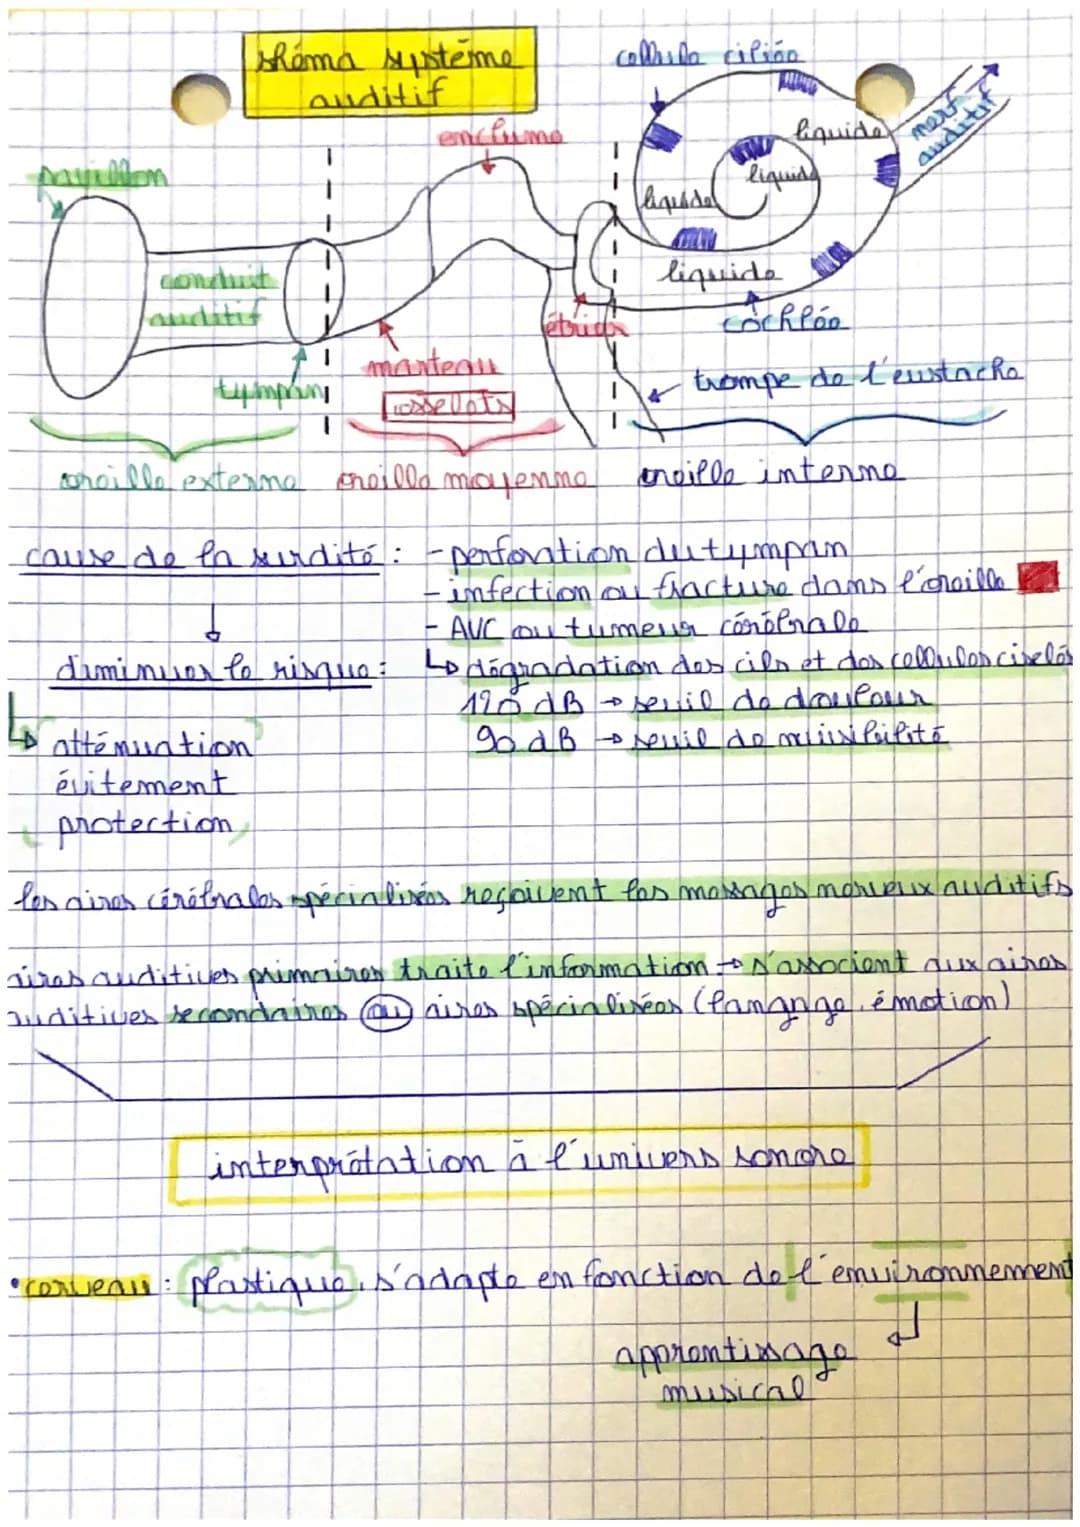 shéma système
auditif
cellule ciliée
enclume
pavillon
liquide
nerf
auditif
liquide
liquide
conduit
auditif
liquide
étrier
cochlée
marteau
tympan
osselets
trompe de l'eustache
oreille externe oreille moyenne oreille interne
cause de la surdité : - perforation du tympan
- infection ou fracture dans l'oreille
- AVC ou tumeur cérébrale
diminuer le risque : ↳ dégradation des cils et des cellules ciselés
120 dB → seuil de douleur
↳ atténuation 90 dB → seuil de nuisibilité
évitement
protection
les aires cérébrales spécialisées reçoivent les messages nerveux auditifs
aires auditives primaires traite l'information → s'associent aux aires
auditives secondaires ou aires spécialisées (langage, émotion)
interprétation à l'univers sonore
• cerveau : plastique, s'adapte en fonction de l'environnement
apprentissage
musical